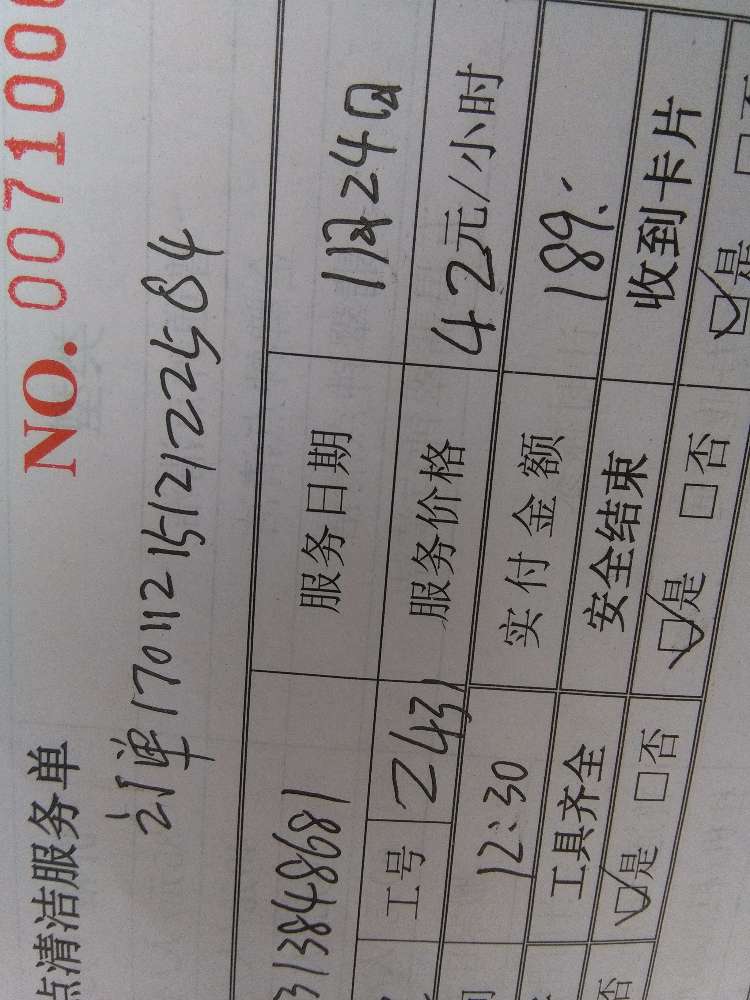 NO. 007100
点清洁服务单
订单17011215121222584
313848681 服务日期 11月24日
工号 2431 服务价格 42元/小时
12:30 实付金额 189.
工具齐全 安全结束 收到卡片
否 ☑是 □否 ☑是 □否 ☑是 □否